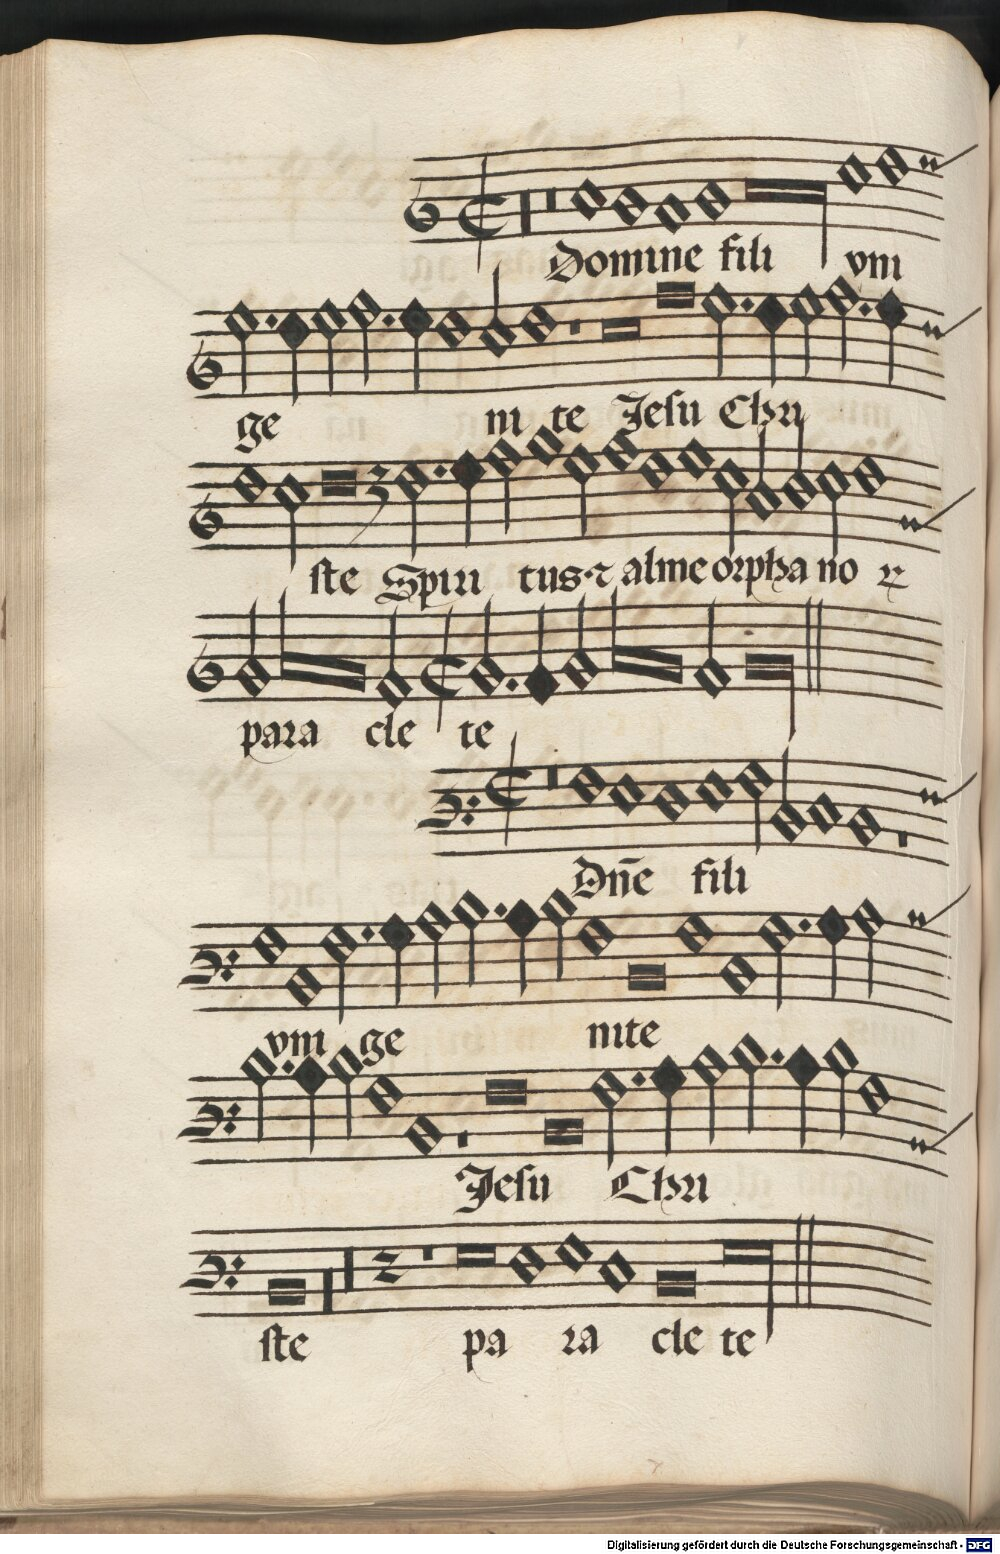 Domine fili vni
ge ni te Jesu Chri
ste Spiri tus ⁊ alme orpha no ꝝ
para cle te
Dn̄e fili
vni ge nite
Jesu Chri
ste pa ra cle te
Digitalisierung gefördert durch die Deutsche Forschungsgemeinschaft - DFG